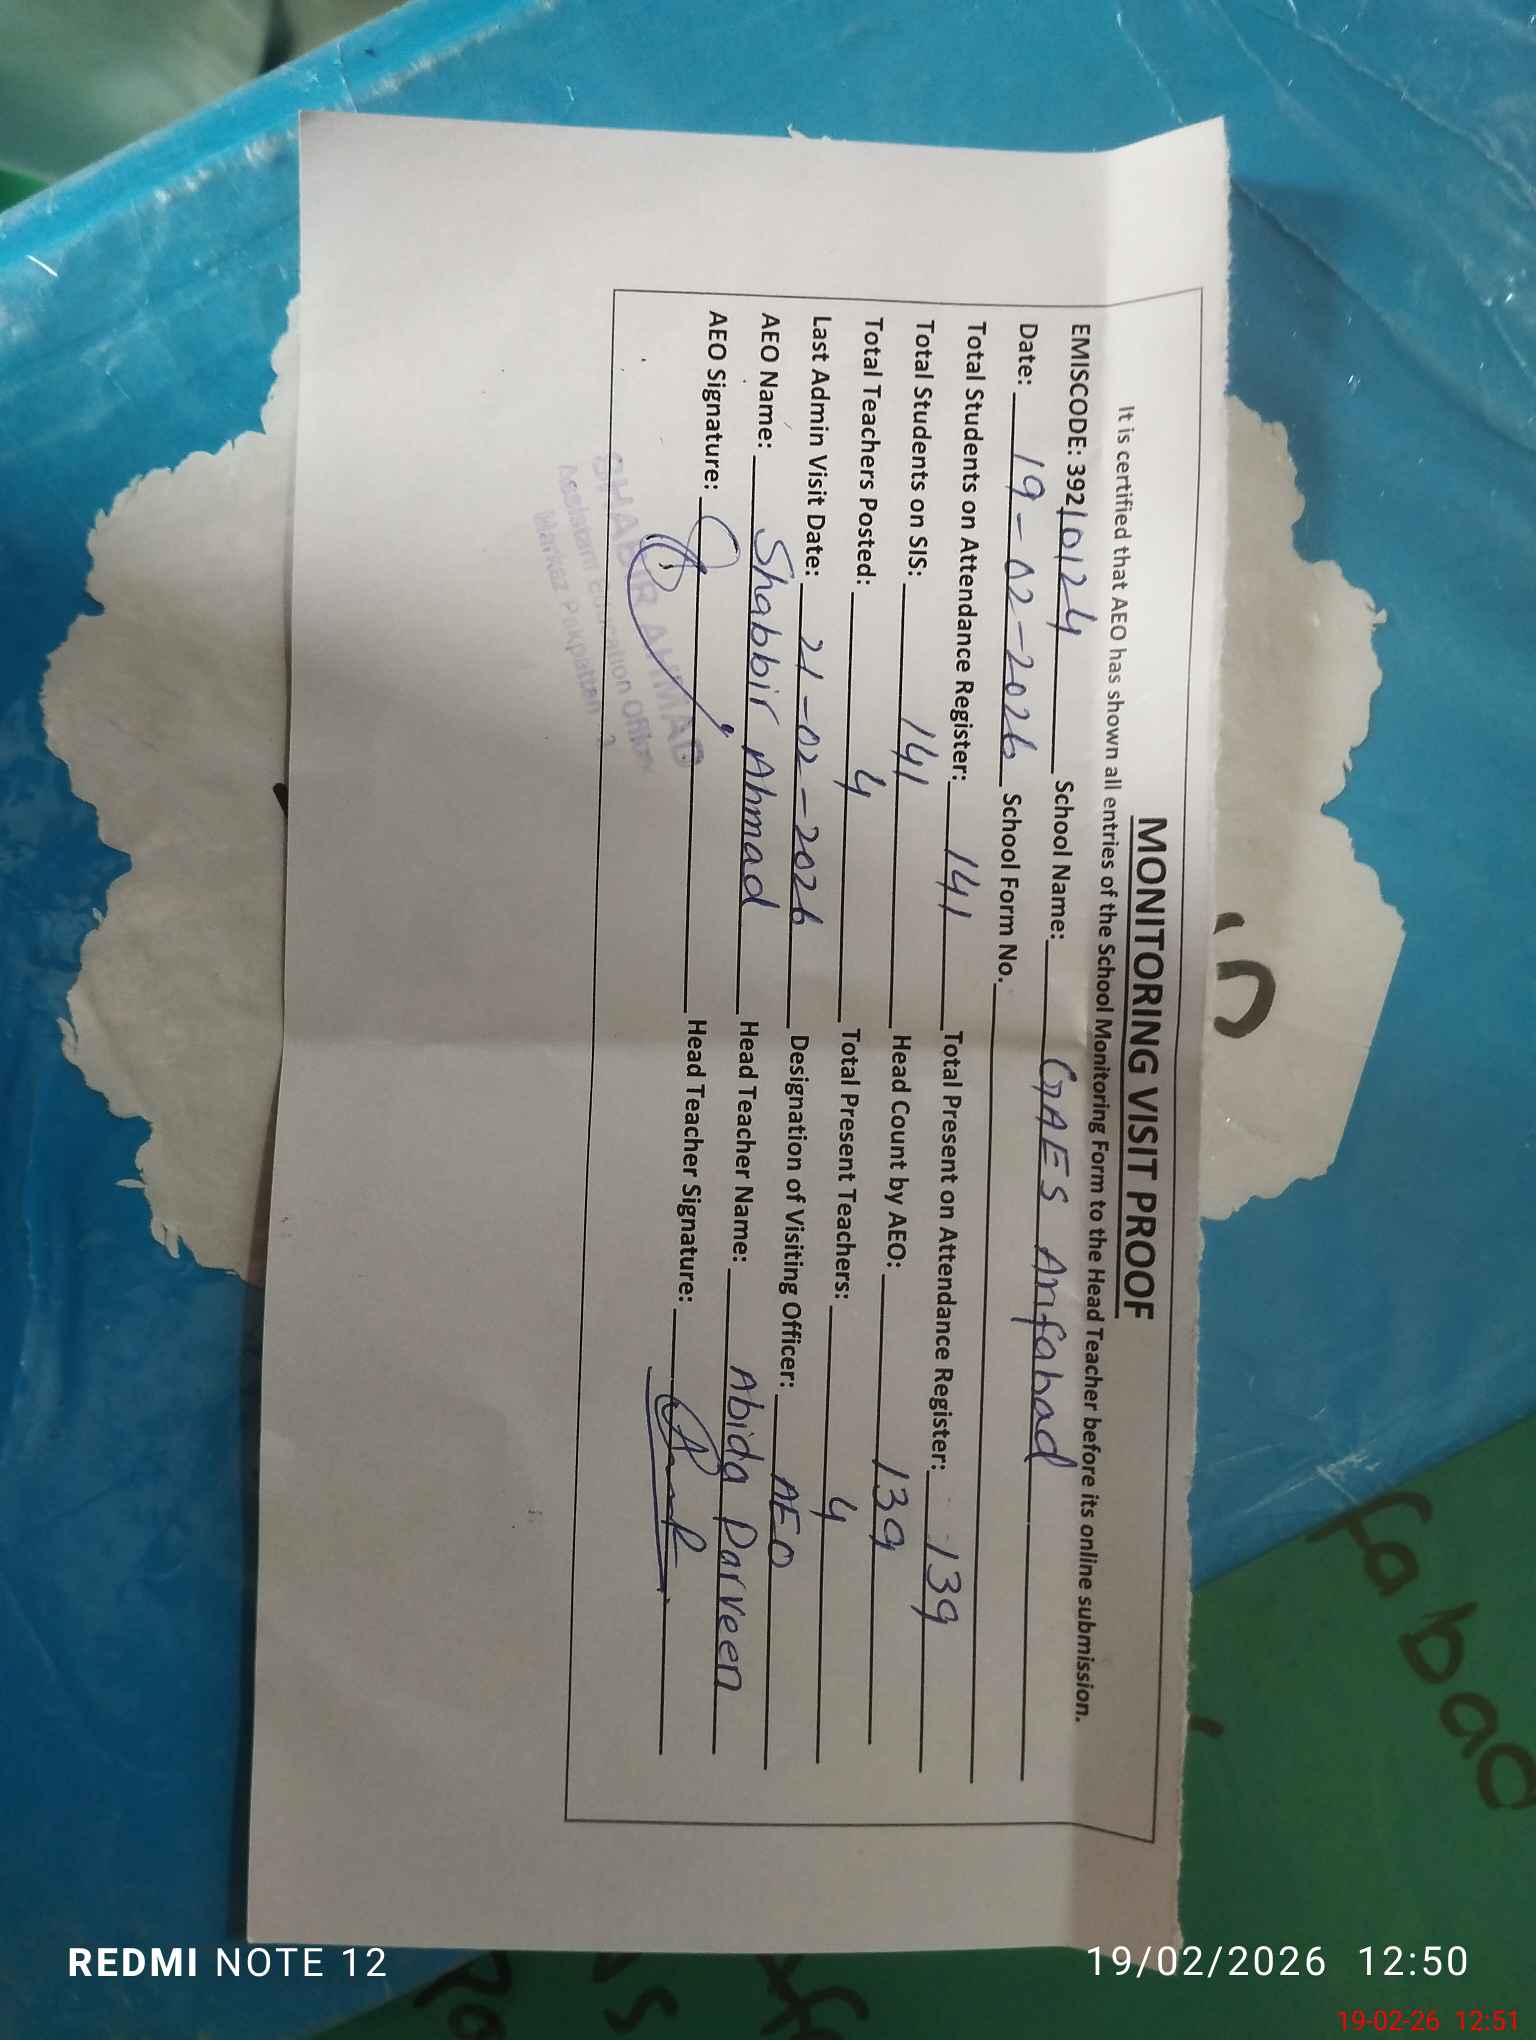 MONITORING VISIT PROOF
It is certified that AEO has shown all entries of the School Monitoring Form to the Head Teacher before its online submission.
EMISCODE: 39210124 School Name: GAES Arifabad
Date: 19-02-2026 School Form No.
Total Students on Attendance Register: 141 Total Present on Attendance Register: 139
Total Students on SIS: 141 Head Count by AEO: 139
Total Teachers Posted: 4 Total Present Teachers: 4
Last Admin Visit Date: 21-02-2026 Designation of Visiting Officer: AEO
AEO Name: Shabbir Ahmad Head Teacher Name: Abida Parveen
AEO Signature: Head Teacher Signature:
SHABIR AHMAD
Assistant Education Officer
Markaz Pakpattan
fabad
REDMI NOTE 12
19/02/2026 12:50
19-02-26 12:51